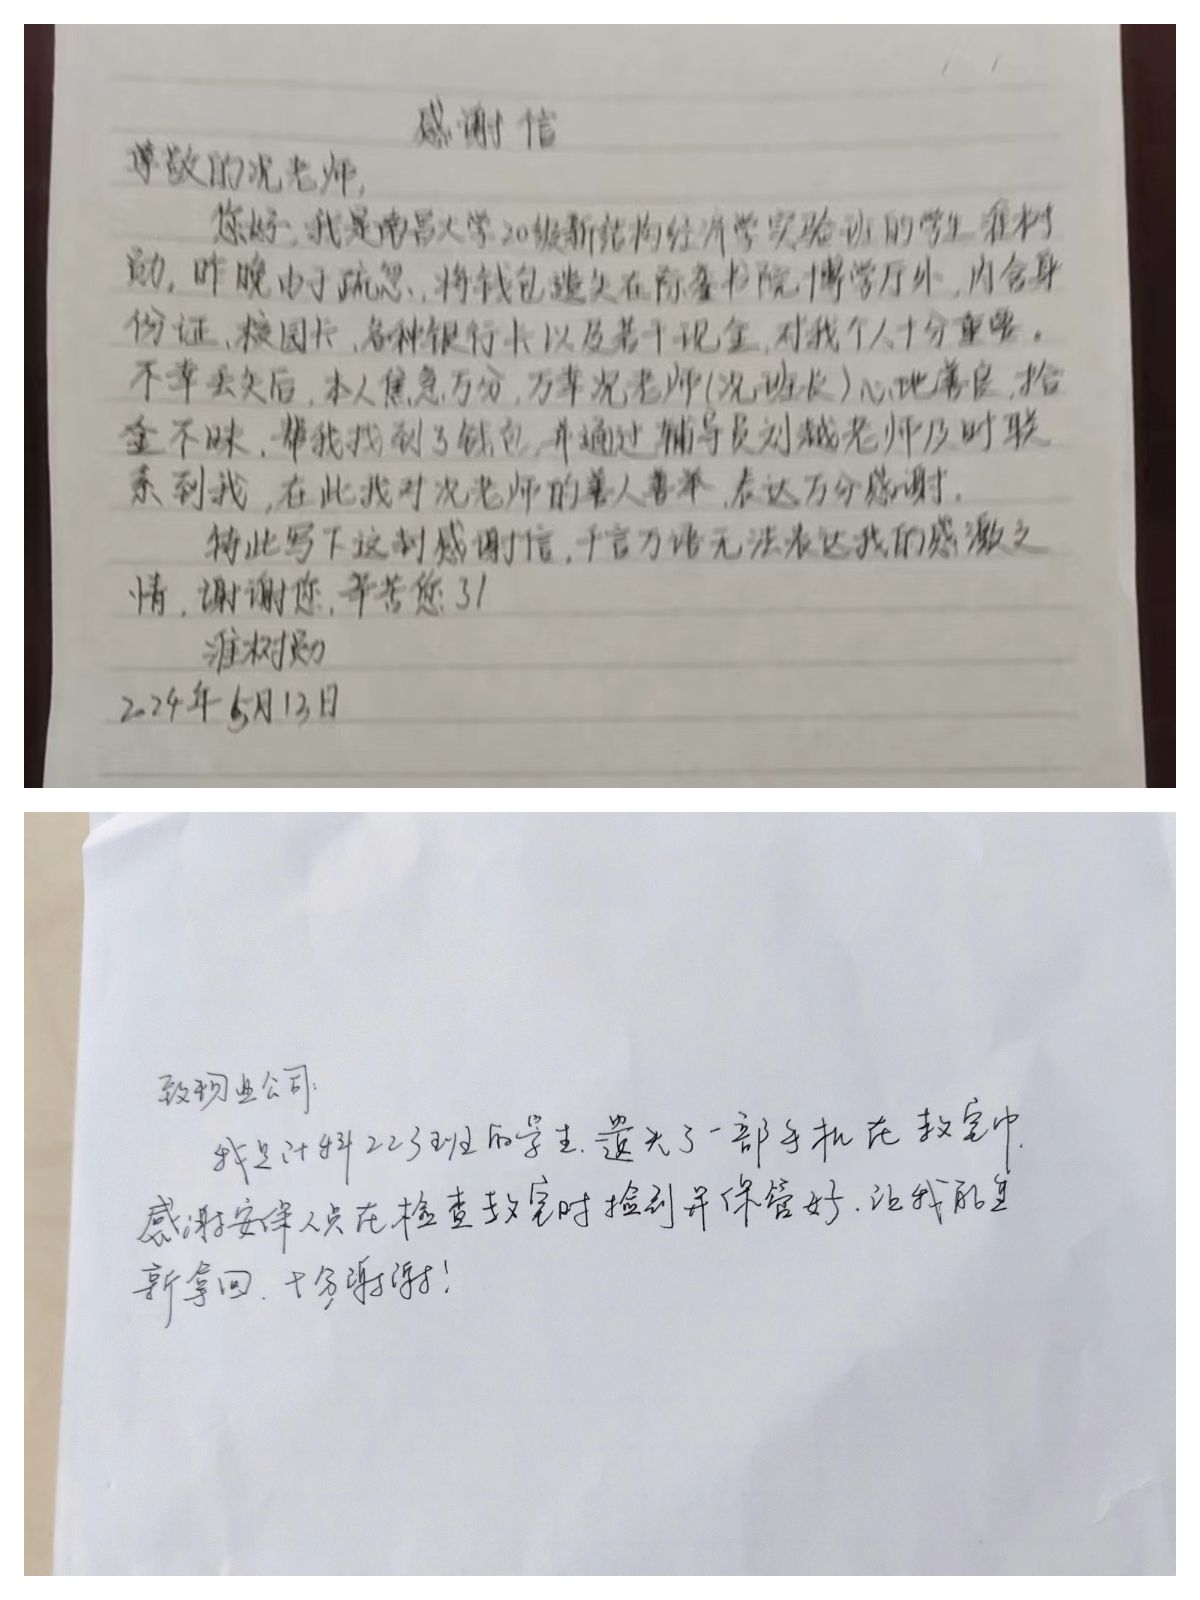 感谢信
尊敬的况老师,
您好,我是南昌大学20级新结构经济学实验班的学生淮树
勋,昨晚由于疏忽,将钱包遗失在际銮书院博学厅外,内含身
份证、校园卡、各种银行卡以及若干现金,对我个人十分重要。
不幸丢失后,本人焦急万分,万幸况老师(况班长)心地善良,拾
金不昧,帮我找到了钱包,并通过辅导员刘越老师及时联
系到我,在此我对况老师的善人善举,表达万分感谢。
特此写下这封感谢信,千言万语无法表达我的感激之
情,谢谢您,辛苦您了!
淮树勋
2024年5月13日
致物业公司:
我是计科223班的学生.遗失了一部手机在教室中.
感谢安保人员在检查教室时捡到并保管好.让我能重
新拿回.十分谢谢!